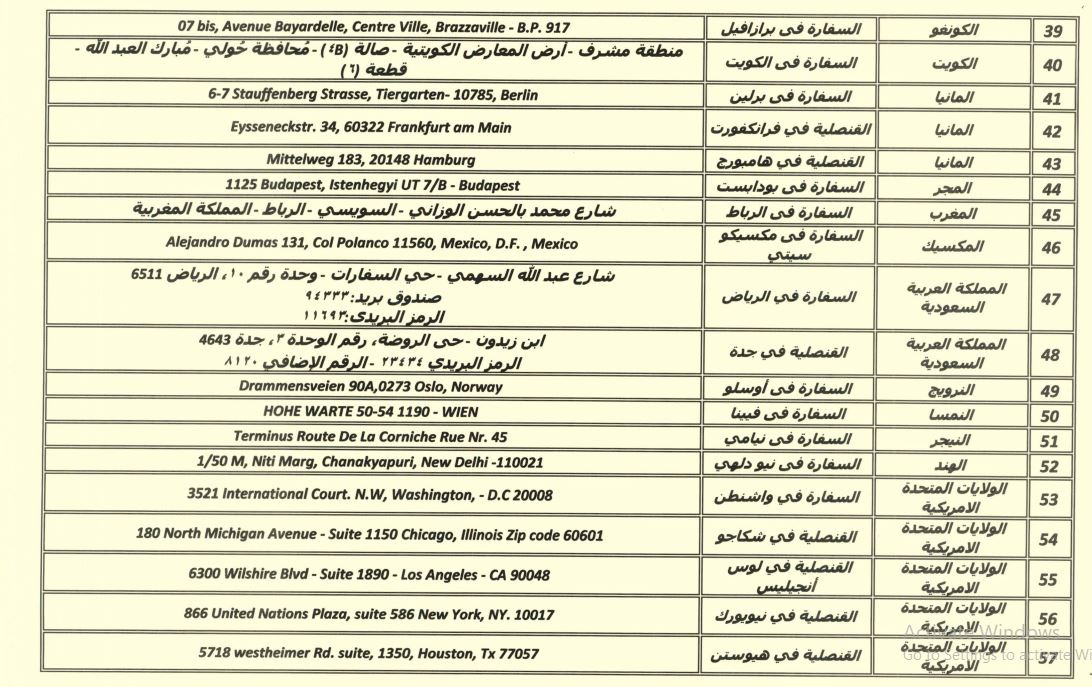 39 الكونغو السفارة في برازافيل 07 bis, Avenue Bayardelle, Centre Ville, Brazzaville - B.P. 917
40 الكويت السفارة فى الكويت منطقة مشرف - أرض المعارض الكويتية - صالة (٤B) - مُحافظة حُولي - مُبارك العبد الله -
قطعة (٦)
41 المانيا السفارة فى برلين 6-7 Stauffenberg Strasse, Tiergarten- 10785, Berlin
42 المانيا القنصلية في فرانكفورت Eysseneckstr. 34, 60322 Frankfurt am Main
43 المانيا القنصلية في هامبورج Mittelweg 183, 20148 Hamburg
44 المجر السفارة فى بودابست 1125 Budapest, Istenhegyi UT 7/B - Budapest
45 المغرب السفارة فى الرباط شارع محمد بالحسن الوزاني - السويسي - الرباط - المملكة المغربية
46 المكسيك السفارة فى مكسيكو
سيتي Alejandro Dumas 131, Col Polanco 11560, Mexico, D.F. , Mexico
47 المملكة العربية
السعودية السفارة في الرياض شارع عبد الله السهمي - حي السفارات - وحدة رقم ١٠، الرياض 6511
صندوق بريد: ٩٤٣٣٣
الرمز البريدى: ١١٦٩٣
48 المملكة العربية
السعودية القنصلية في جدة ابن زيدون - حى الروضة، رقم الوحدة ٣، جدة 4643
الرمز البريدي ٢٣٤٣٤ - الرقم الإضافي ٨١٢٠
49 النرويج السفارة فى أوسلو Drammensveien 90A,0273 Oslo, Norway
50 النمسا السفارة فى فيينا HOHE WARTE 50-54 1190 - WIEN
51 النيجر السفارة فى نيامي Terminus Route De La Corniche Rue Nr. 45
52 الهند السفارة فى نيو دلهي 1/50 M, Niti Marg, Chanakyapuri, New Delhi -110021
53 الولايات المتحدة
الامريكية السفارة في واشنطن 3521 International Court. N.W, Washington, - D.C 20008
54 الولايات المتحدة
الامريكية القنصلية في شكاجو 180 North Michigan Avenue - Suite 1150 Chicago, Illinois Zip code 60601
55 الولايات المتحدة
الامريكية القنصلية في لوس
أنجيليس 6300 Wilshire Blvd - Suite 1890 - Los Angeles - CA 90048
56 الولايات المتحدة
الامريكية القنصلية في نيويورك 866 United Nations Plaza, suite 586 New York, NY. 10017
57 الولايات المتحدة
الامريكية القنصلية في هيوستن 5718 westheimer Rd. suite, 1350, Houston, Tx 77057
Activate Windows
Go to Settings to activate Wi